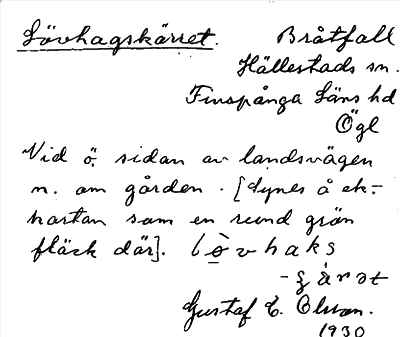 Lövhagskärret. Bråtfall
Hällestads sn.
Finspånga Läns hd
Ögl
Vid ö. sidan av landsvägen
n. om gården. [Synes å ek.-
kartan som en rund grön
fläck där]. løvhaks
Gustaf E. Olsson.
1930